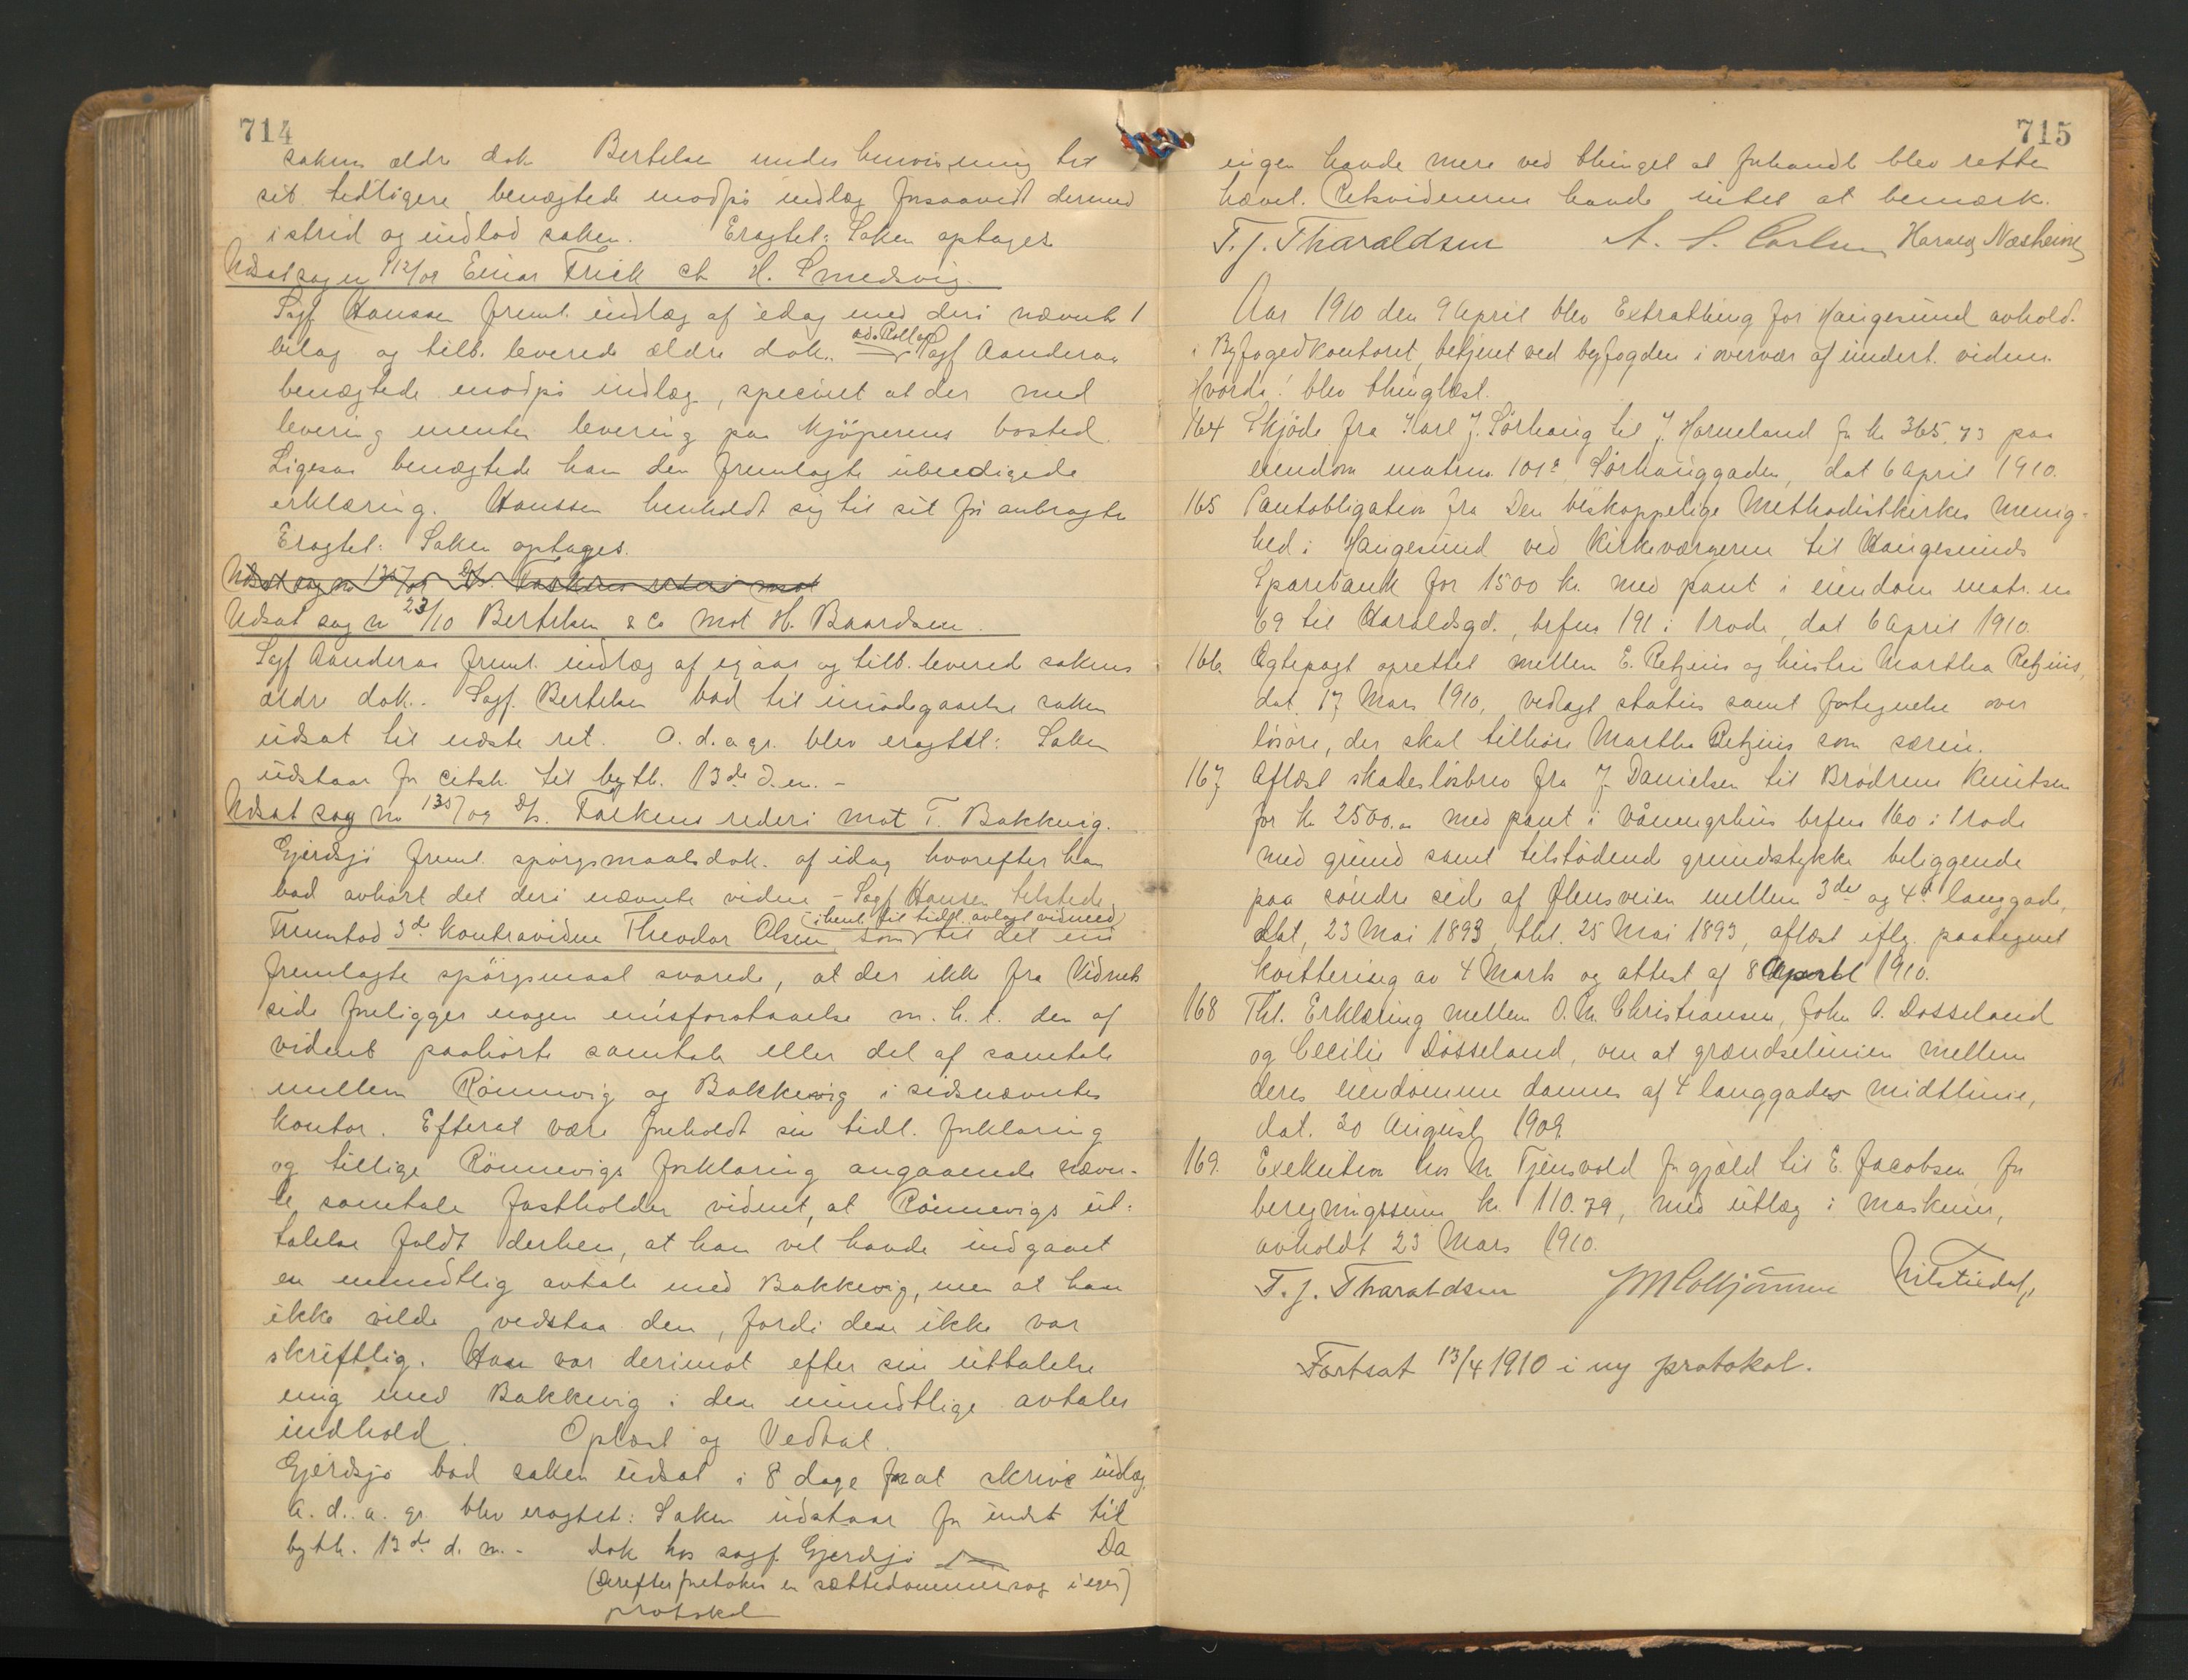 714
sakens ældre dok Bertelsen under henvisning til
sit tidligere benægtede modpå indlæg forsaavidt dermed
i strid og indlod saken. Eragtet: Saken optages
Udsat sag n 112/09 Einar Frick ct H. Smedsvig.
Sagf Hanssen freml. indlæg af idag med deri nævnte 1
bilag og tilb. leverede ældre dok. Sagf Aanderaa
benægtede modp's indlæg, specielt at der med
levering mentes levering paa kjøperens bosted.
Ligesaa benægtede han den fremlagte ubeedigede
erklæring. Hanssen henholdt sig til sit før anbragte
Eragtet: Saken optages.
Udsat sag n 23/10 Bertelsen & Co mot H. Baardsen.
Sagf Aanderaa freml. indlæg af igaar og tilb. levered sakens
ældre dok. Sagf. Bertelsen bad til imødegaaelse saken
udsat til næste ret. A. d. a gr. blev eragtet: Saken
udstaar for citsk. til byth. 13de d.m. -
Udsat sag no 135/09 D/S. Falkens rederi mot T. Bakkevig.
Gjerdsjø freml. spørgsmaalsdok. af idag hvorefter han
bad avhørt det deri nævnte vidne - Sagf Hansen tilstede
(i henh. til tidl. avlagt vidneed)
Fremstod 3de kontravidne Theodor Olsen, som til det nu
fremlagte spørgsmaal svarede, at der ikke fra Vidnets
side foreligger nogen misforstaaelse m. h. t. den af
vidnet paahørte samtale eller del af samtale
mellem Rönnevig og Bakkevig i sidsnævntes
kontor. Efterat være foreholdt sin tidl. forklaring
og tillige Rönnevigs forklaring angaaende nævn-
te samtale fastholder vidnet, at Rönnevigs ut-
talelse faldt derhen, at han vel havde indgaaet
en mundtlig avtale med Bakkevig, men at han
ikke vilde vedstaa den, fordi den ikke var
skriftlig. Han var derimot efter sin uttalelse
enig med Bakkevig i den mundtlige avtales
indhold. Oplæst og Vedtat.
Gjerdsjø bad saken udsat i 8 dage for at skrive indlæg
A. d. a. gr. blev eragtet: Saken udstaar for indst til
byth. 13de d. m. - Dok hos sagf. Gjerdsjø Da
(Derefter foretokes en sættedommersag i egen)
protokol
715
ingen havde mere ved thinget at forhandle blev retten
hævet. Retsvidnerne havde intet at bemærk.
T. J. Tharaldsen A. S. Carlsen Harald Næsheim
Aar 1910 den 9 April blev Extrathing for Haugesund avhold.
i Byfogedkontoret, betjent ved byfogden i overvær af undert. vidner.
Hvorda! blev thinglæst.
164 Skjøde fra Karl J. Sörhaug til J. Horneland for kr 365,73 paa
eiendom matrno 101a, Sörhauggaden, dat 6 April 1910.
165 Pantobligation fra Den biskoppelige Methodistkirkes Menig-
hed i Haugesund ved kirkeværgerne til Haugesunds
Sparebank for 1500 kr. med pant i eiendom matr. no
69 til Haraldsgd., brfno 191 i 1 rode, dat 6 April 1910.
166. Ægtepagt oprettet mellem E. Retzius og hustru Martha Retzius,
dat. 17 Mars 1910, vedlagt status samt fortegnelse over
løsøre, der skal tilhøre Martha Retzius som særeie.
167 Aflæst skadesløsbrev fra J. Danielsen til Brødrene Knutsen
for kr 2500.00 med pant i våningshus brfno 160 i 1 rode
med grund samt tilstødende grundstykke beliggende
paa søndre side af Ølensveien mellem 3die og 4de langgade,
dat, 23 Mai 1893, thl. 25 Mai 1893, aflæst iflg. paategnet
kvittering av 4 Marts og attest af 8 April 1910.
168 Thl. Erklæring mellem O. M. Christiansen, John A. Døsseland
og Cecilie Døsseland, om at grændselinien mellem
deres eiendomme dannes af 4 langgades midtlinie,
dat. 20 August 1909.
169. Exekution hos M. Tjensvold for gjæld til E. Jacobsen, for
beregningssum kr. 110.79, med utlæg i maskiner,
avholdt 23 Mars 1910.
T. J. Tharaldsen
Fortsat 13/4 1910 i ny protokol.